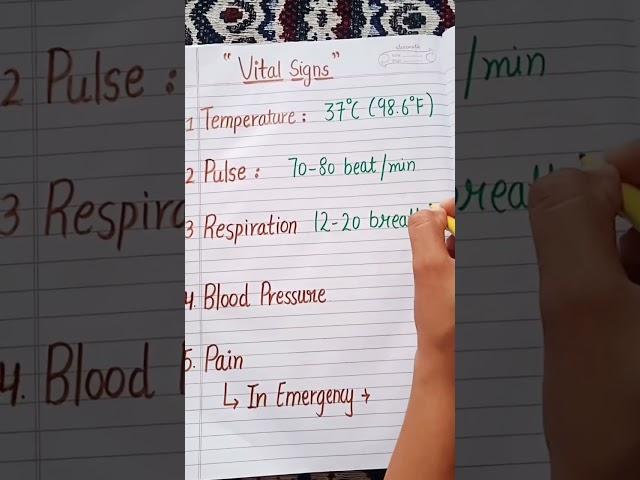 "Vital Signs"
1 Temperature : 37°C (98.6°F)
2 Pulse : 70-80 beat/min
3 Respiration 12-20 breath
4. Blood Pressure
5. Pain
↳ In Emergency →